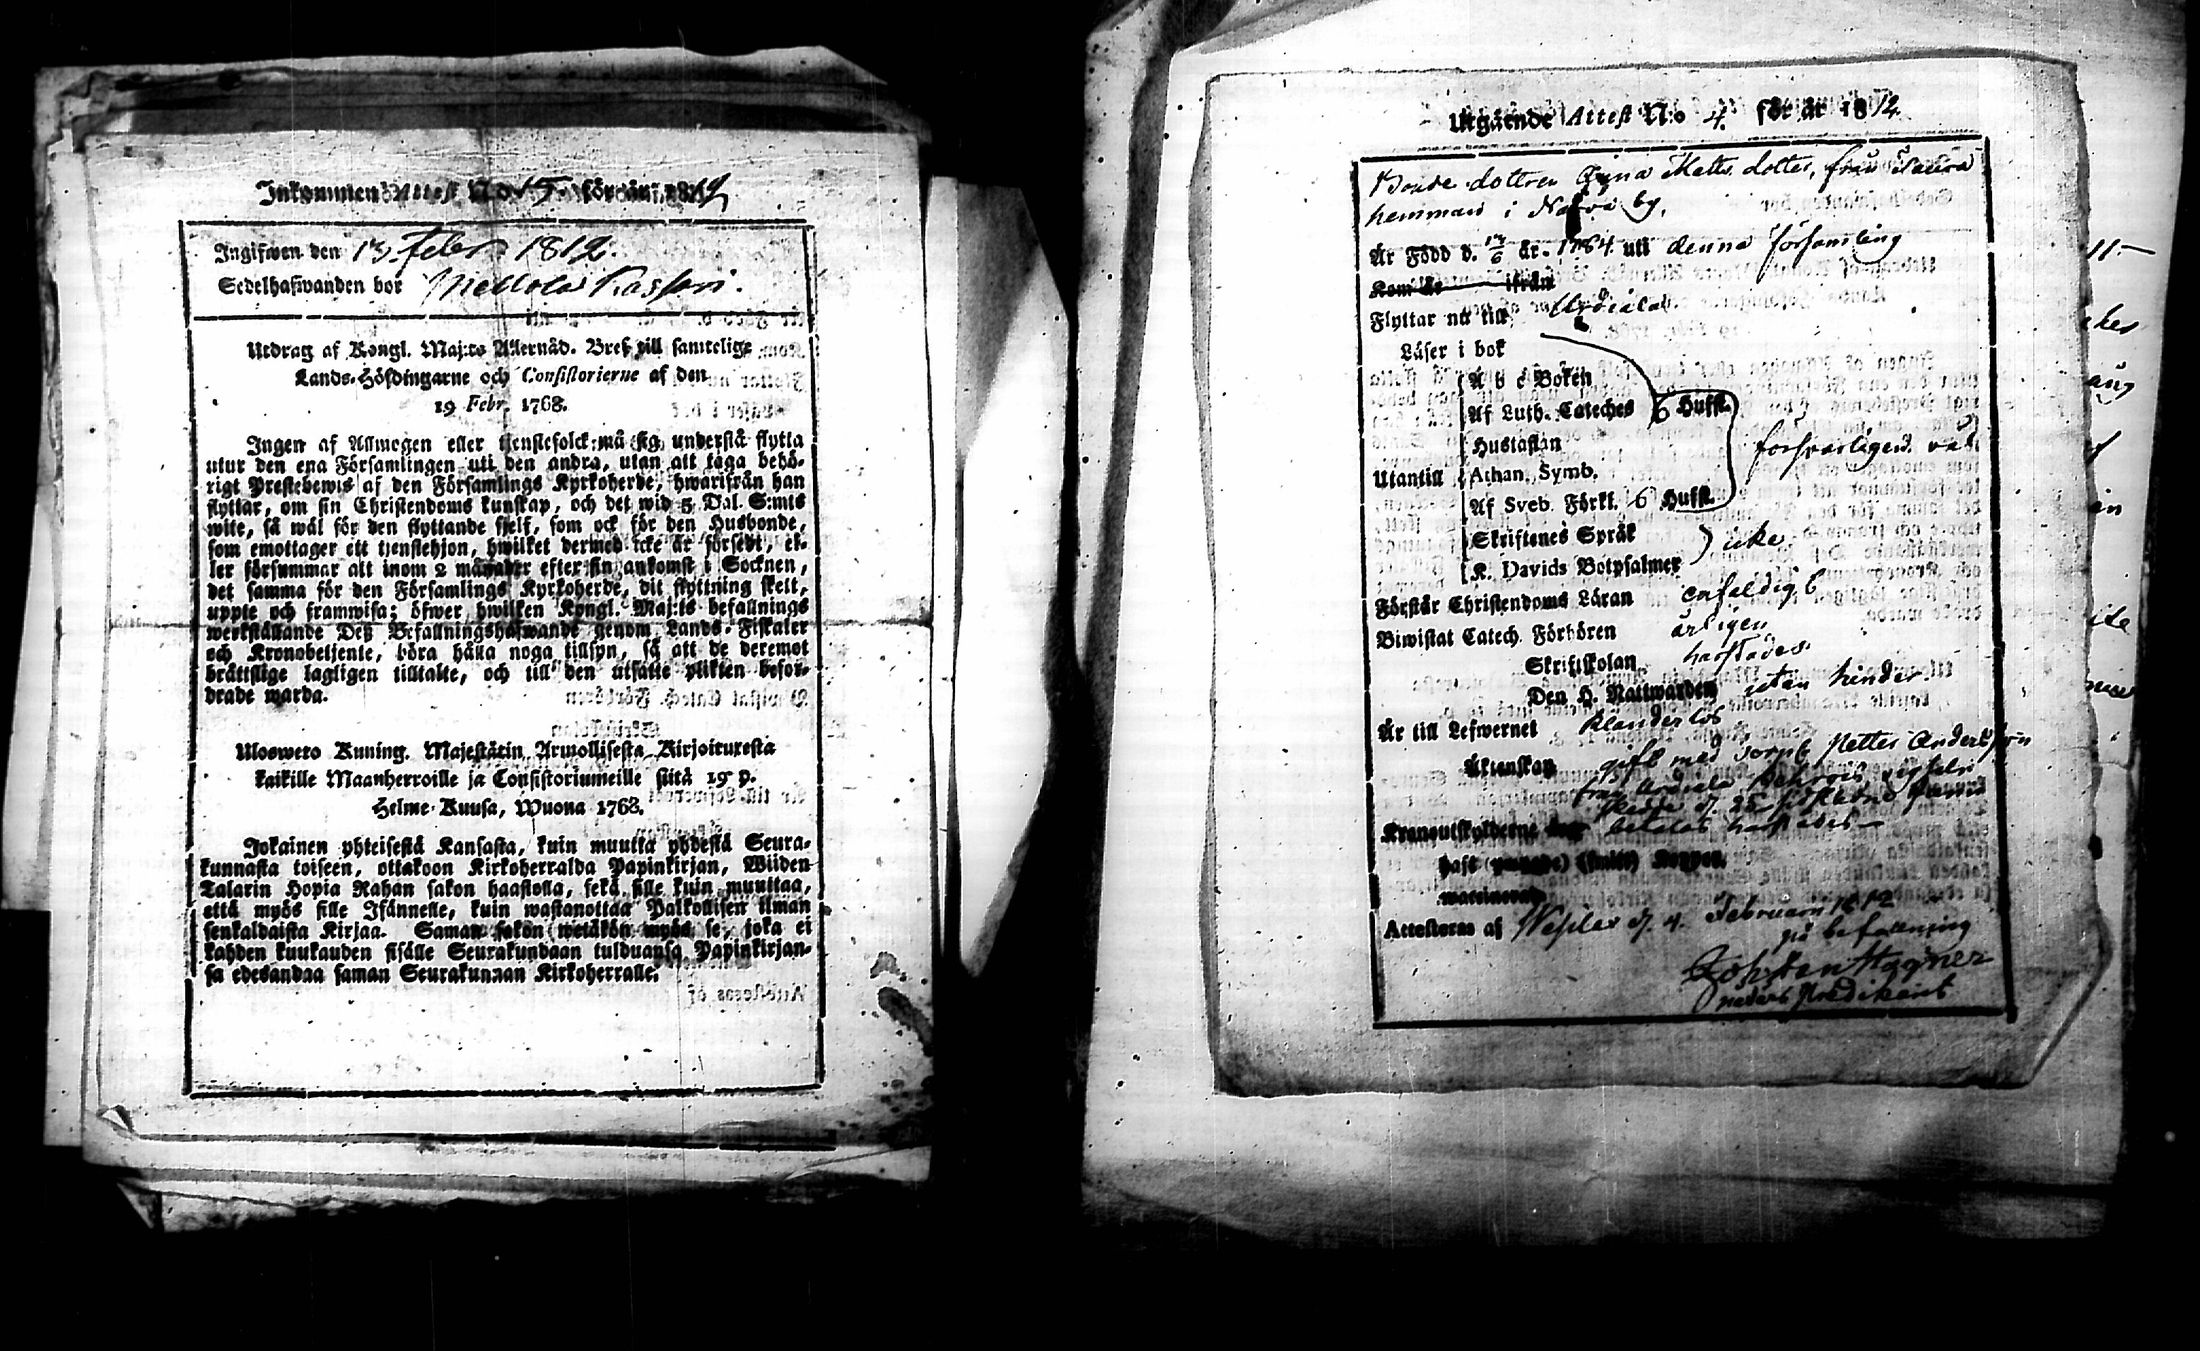 Inkommen Attest No 15. för år 1812
Ingifwen den 13 Febr 1812.
Sedelhafwanden bor Mellola Kassari.
Utdrag af Kongl. Maj:ts Allernåd. Bref till samtelige
Lands-Höfdingarne och Consistorierne af den
19 Febr. 1768.
Ingen af Allmogen eller tjenstefolck må sig understå flytta
utur den ena Församlingen uti den andra, utan att taga behö-
rigt Prestebewis af den Församlings Kyrkoherde, hwarifrån han
flyttar, om sin Christendoms kunskap, och det wid 5 Dal. S:mts
wite, så wäl för den flyttande sjelf, som ock för den Husbonde,
som emottager ett tjenstehjon, hwilket dermed icke är försedt, el-
ler försummar att inom 2 månader efter sin ankomst i Socknen,
det samma för den Församlings Kyrkoherde, dit flyttning skett,
uppte och framwisa; öfwer hwilken Kongl. Maj:ts befallnings
werkställande Deß Befallningshafwande genom Lands-Fiskaler
och Kronobetjente, böra hålla noga tillsyn, så att de deremot
bråttslige lagligen tilltalte, och till den utsatte plikten befor-
drade warda.
Ulosweto Kuning. Majestätin Armollisesta Kirjoituxesta
kaikille Maanherroille ja Consistoriumeille siitä 19 p.
Helme-Kuusa, Wuona 1768.
Jokainen yhteisestä Kansasta, kuin muutta yhdestä Seura-
kunnasta toiseen, ottakoon Kirkoherralda Papinkirjan, Wiiden
Talarin Hopia Rahan sakon haastolla, sekä sille kuin muuttaa,
että myös sille Isännelle, kuin wastanottaa Palkollisen ilman
senkaldaista Kirjaa. Saman sakon wetäkön myös se, joka ei
kahden kuukauden sisälle Seurakundaan tulduansa Papinkirjan-
sa edesandaa saman Seurakunnan Kirkoherralle.
Utgående Attest N:o 4. för år 1812
Bonde dottren Anna Matts dotter, från
hemman i by,
Är Född d. 17/6 år 1784 uti denna församling
Kom år ifrån
Flyttar nu till Urdiala
Läser i bok
A b c Boken
Af Luth. Cateches 6 Hufst.
Hustaflan
försvarligen väl
Utantill Athan. Symb.
Af Sveb. Förkl. 6 Hufst.
Skriftenes Språk
icke
K. Davids Botpsalmer
Förstår Christendoms Läran enfaldigt
Biwistat Catech. Förhören årligen
Skriftskolan
Den H. Nattwarden utan hinder.
Är till Lefwernet klanderlös
Äktenskap gift med Matts Andersson
från Urdiala
Kronoutskylderne betalas
haft (smitt) Koppor,
waccinerad
Attesteras af Wesilax d. 4. Februarii 1812
på befallning